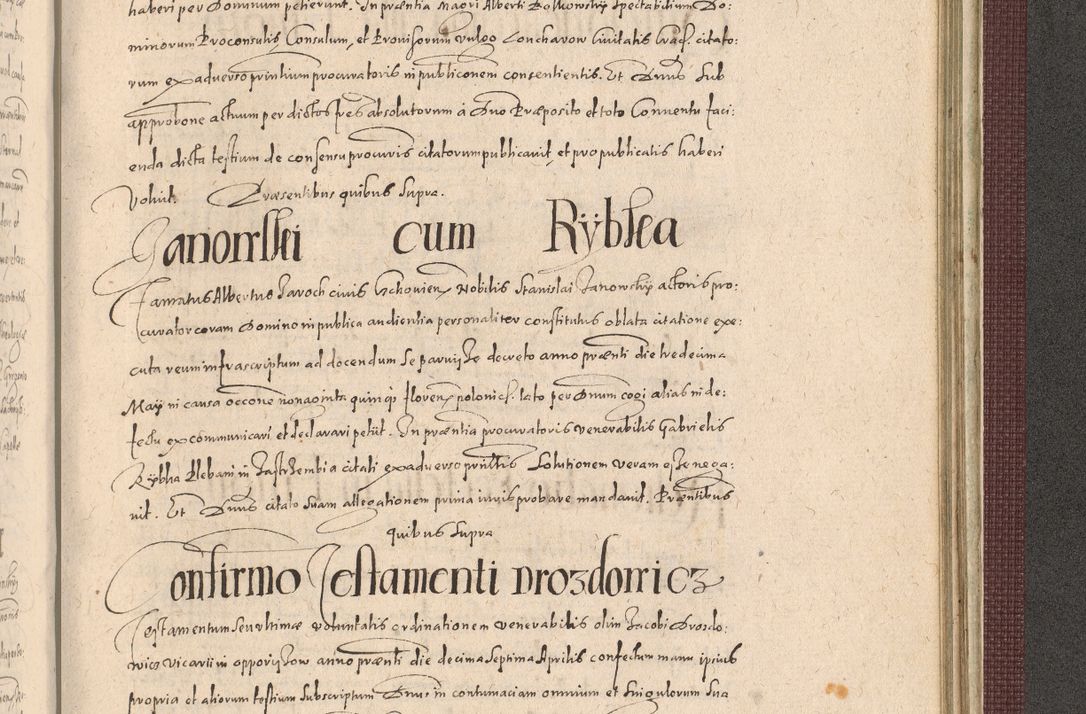 haberi per Dominum petierunt. In præntia Magri Alberti Bolkowsky Spectabilium Do:
minorum Proconsulis, Consulum, et Provisorum vulgo Loncharow Civitatis Cracs. citato:
rum ex adverso printium procuratoris in publiconem consentientis. Et Dnus Sub
approbone actuum per dictos fres absolutorum à Dno Præposito et toto Conventu faci:
enda dicta testium de consensu procuris citatorum publicavit, et pro publicatis haberi
Voluit. Præsentibus quibus Supra.
Janowskei cum Rÿbkea
Famatus Albertus Zaroch civis Nobilis Stanislai Janowsky actoris pro:
curator coram Domino in publica audientia personaliter constitutus oblata citatione exe:
cuta reum infrascriptum ad docendum Se paruisse decreto anno prænti die tredecima
Maÿ in causa occone nonaginta quinq florenx polonics. lato per Dnum cogi alias in de:
fectu excommunicari et declarari petiit. In præntia procuratoris venerabilis Gabrielis
Rybka Plebani in Jastrzembia citati ex adverso prnitis Solutionem veram esse nega:
vit. Et Dnus citato Suam allegationem prima iuris probare mandavit. Præntibus
quibus Supra
Confirmo Testamenti Drozdowicz
Testamentum Seu ultimæ voluntatis ordinationem venerabilis olim Jacobi Drozdo:
wicz Vicarii in oppoczzow anno prænti die decima Septima Aprilis confectum manu ipsius
propria et aliorum testium Subscriptum Dnus in contumaciam omnium et Singulorum Sua